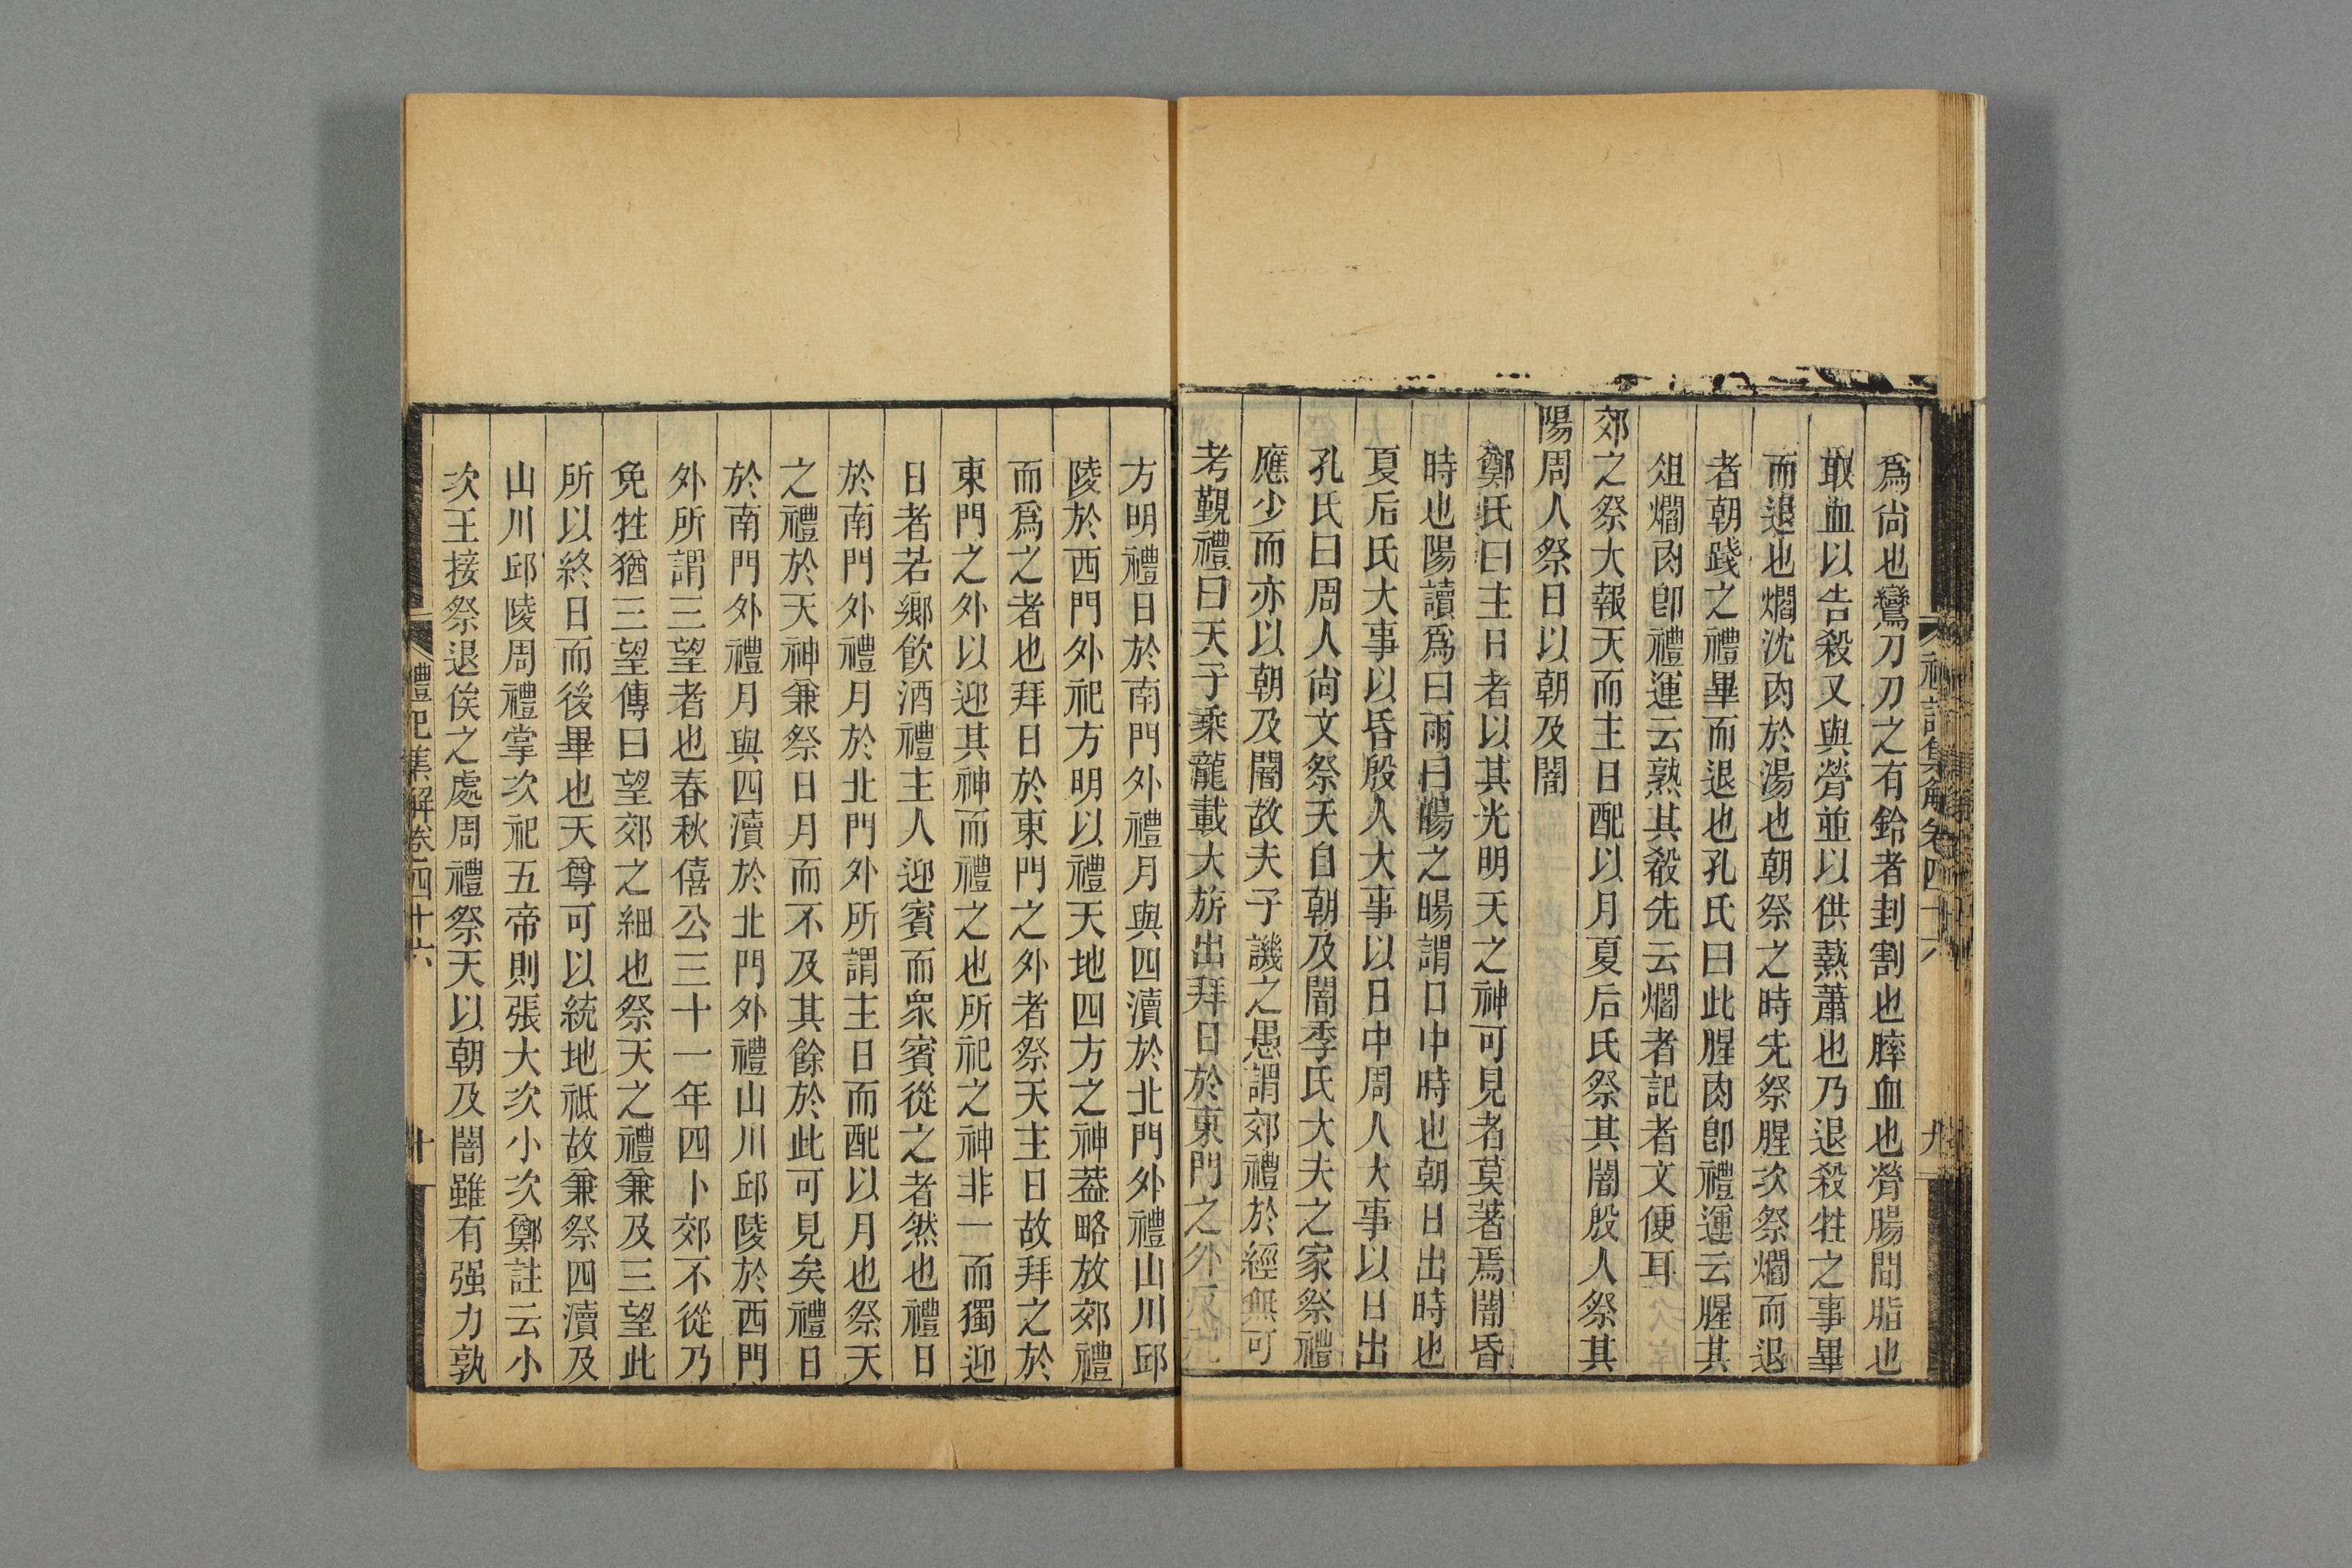 禮記集解卷四十六
九
爲尙也鸞刀刀之有鈴者刲割也膟血也膋腸間脂也
取血以告殺又與膋並以供爇蕭也乃退殺牲之事畢
而退也爓沈肉於湯也朝祭之時先祭腥次祭爓而退
者朝踐之禮畢而退也孔氏曰此腥肉卽禮運云腥其
俎爓肉卽禮運云熟其殽先云爓者記者文便耳
郊之祭大報天而主日配以月夏后氏祭其闇殷人祭其
陽周人祭日以朝及闇
鄭氏曰主日者以其光明天之神可見者莫著焉闇昏
時也陽讀爲曰雨曰暘之暘謂日中時也朝日出時也
夏后氏大事以昏殷人大事以日中周人大事以日出
孔氏曰周人尙文祭天自朝及闇季氏大夫之家祭禮
應少而亦以朝及闇故夫子譏之愚謂郊禮於經無可
考覲禮曰天子乘龍載大旂出拜日於東門之外反祀
方明禮日於南門外禮月與四瀆於北門外禮山川邱
陵於西門外祀方明以禮天地四方之神葢略放郊禮
而爲之者也拜日於東門之外者祭天主日故拜之於
東門之外以迎其神而禮之也所祀之神非一而獨迎
日者若鄉飮酒禮主人迎賓而衆賓從之者然也禮日
於南門外禮月於北門外所謂主日而配以月也祭天
之禮於天神兼祭日月而不及其餘於此可見矣禮日
於南門外禮月與四瀆於北門外禮山川邱陵於西門
外所謂三望者也春秋僖公三十一年四卜郊不從乃
免牲猶三望傳曰望郊之細也祭天之禮兼及三望此
所以終日而後畢也天尊可以統地祇故兼祭四瀆及
山川邱陵周禮掌次祀五帝則張大次小次鄭註云小
次王接祭退俟之處周禮祭天以朝及闇雖有强力孰
禮記集解卷四十六
十